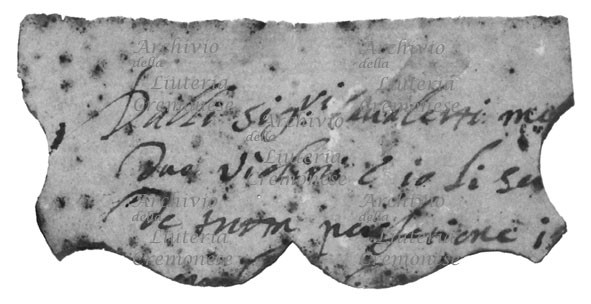 Archivio
della
Liuteria
Cremonese
Archivio
della
Liuteria
Cremonese
Dalli sig.ri me
Duo violini e io li se
De perfetione i
Archivio
della
Liuteria
Cremonese
Archivio
della
Liuteria
Cremonese
Archivio
della
Liuteria
Cremonese